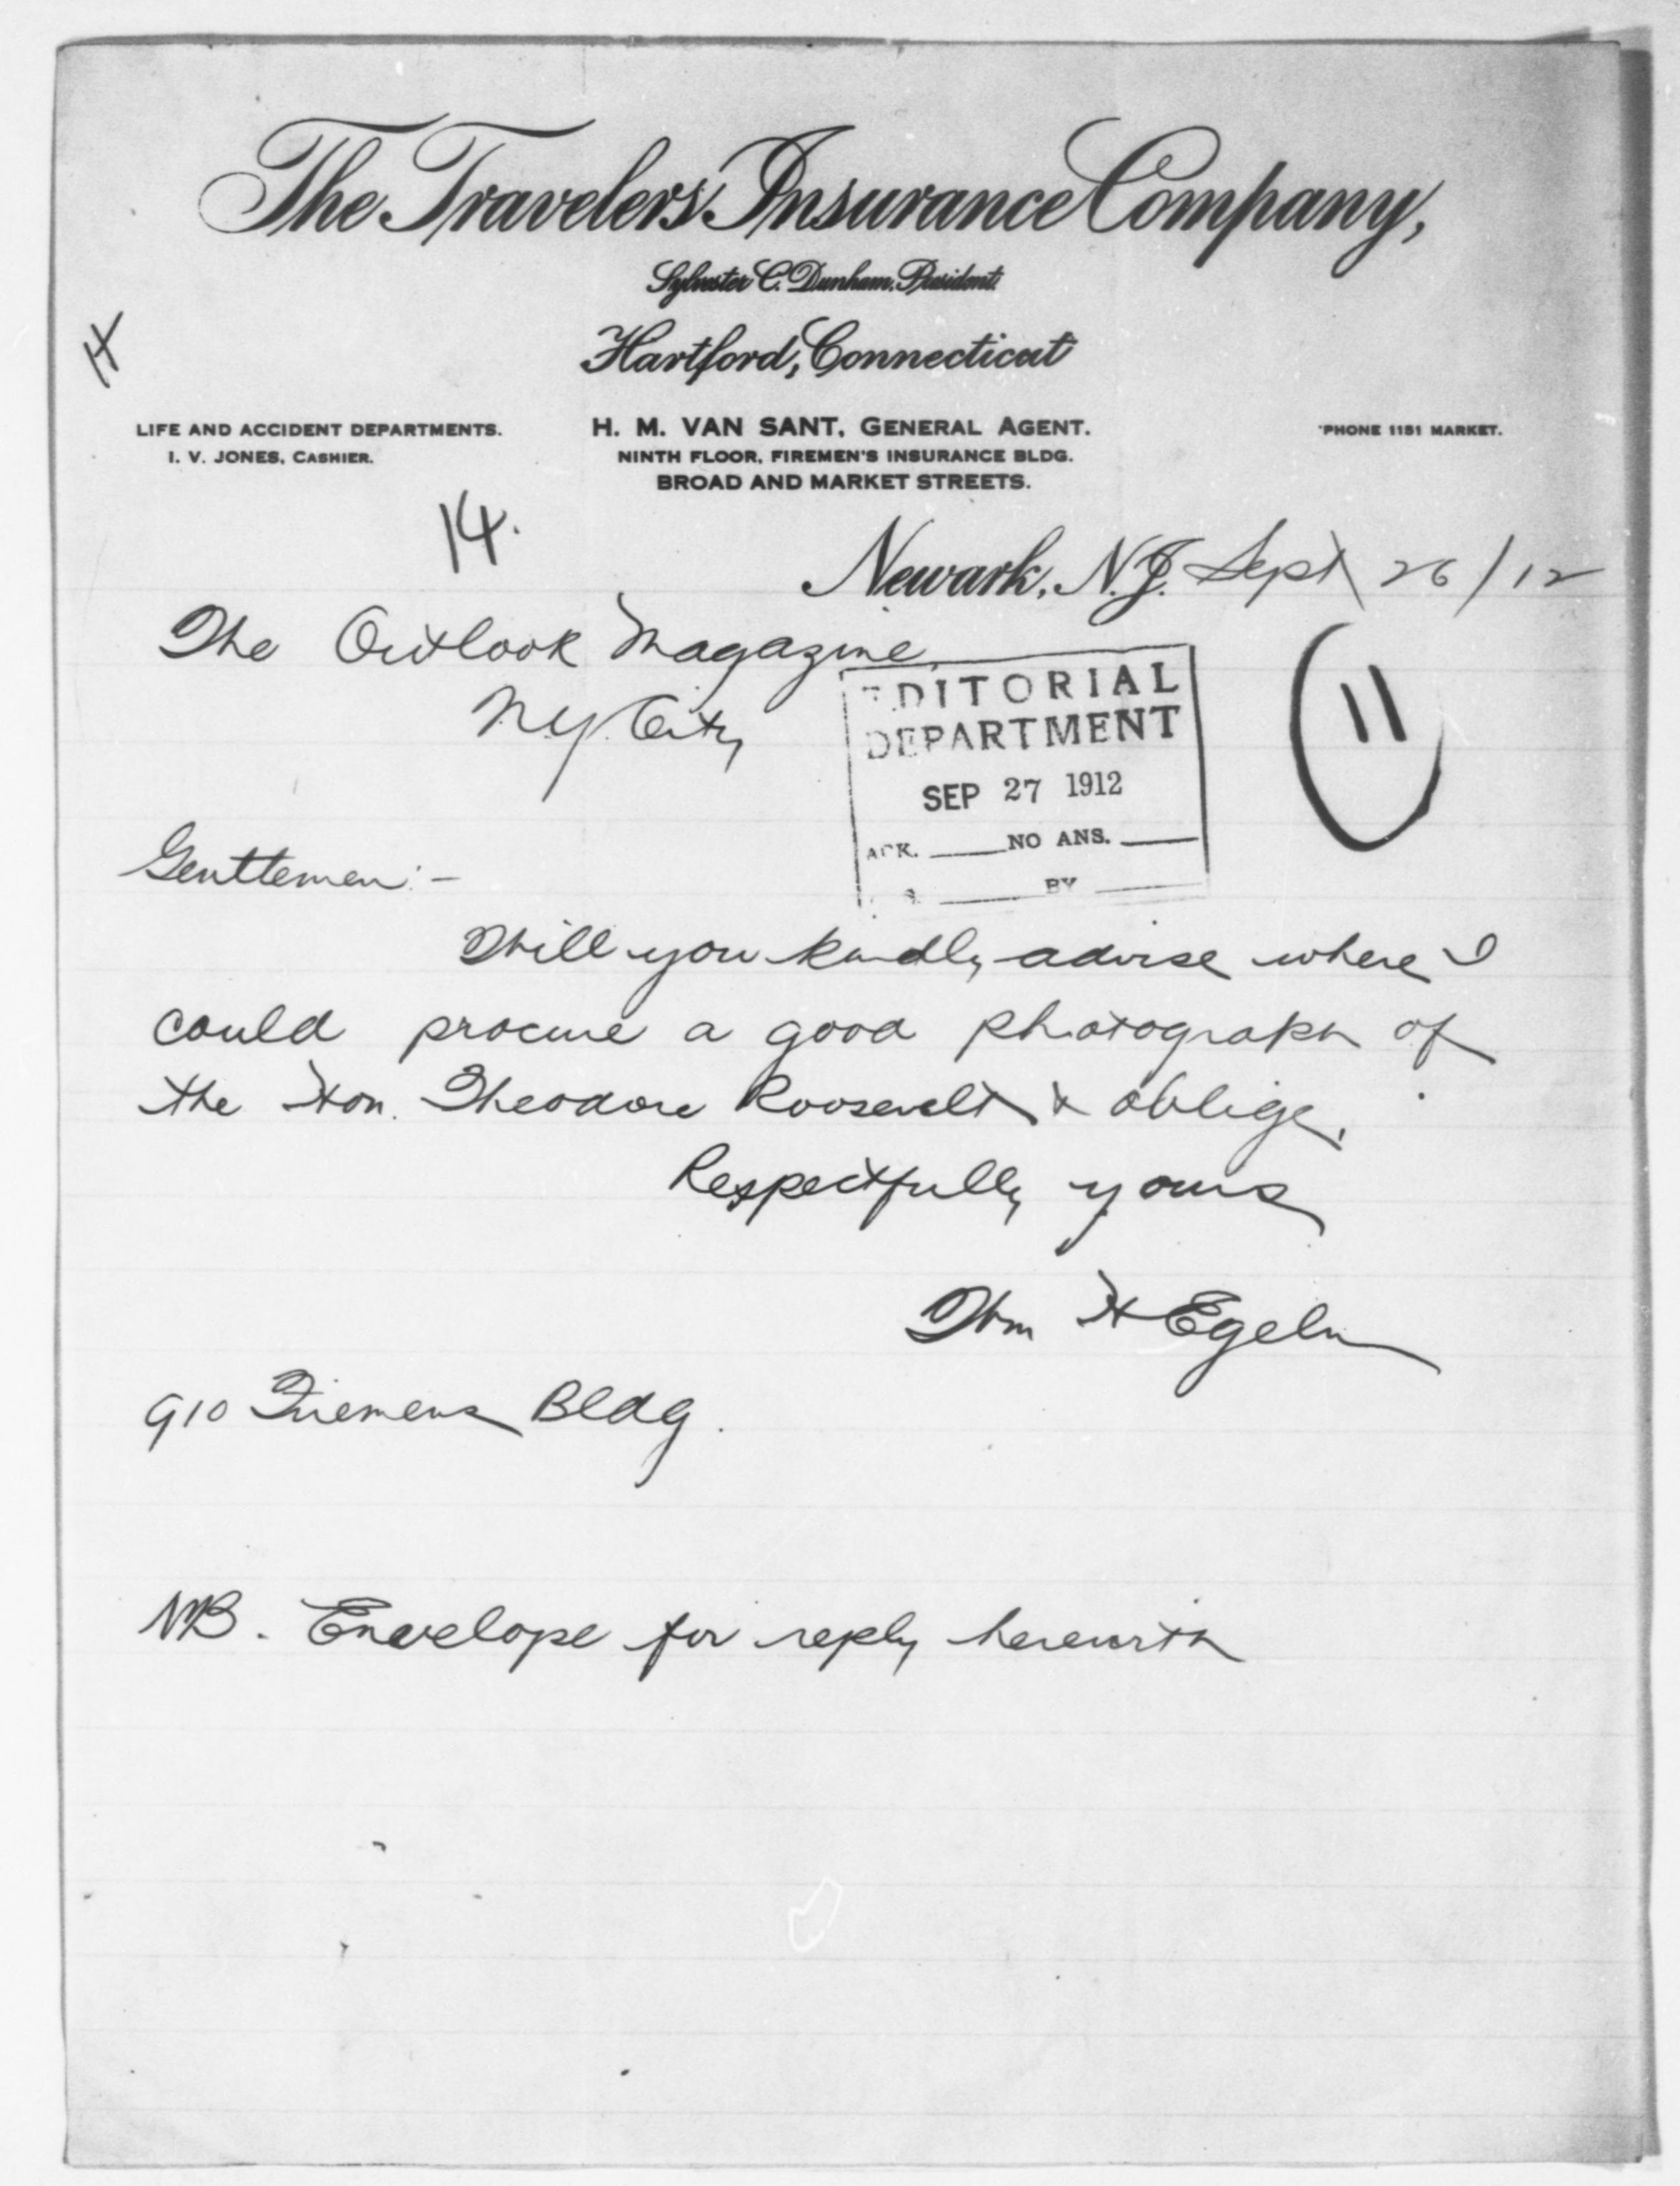 The Travelers Insurance Company,
Sylvester C. Dunham, President.
Hartford, Connecticut
LIFE AND ACCIDENT DEPARTMENTS.
I. V. JONES, CASHIER.
H. M. VAN SANT, GENERAL AGENT.
NINTH FLOOR, FIREMEN'S INSURANCE BLDG.
BROAD AND MARKET STREETS.
'PHONE 1151 MARKET.
14.
Newark, N.J. Sept 26/12
The Outlook Magazine,
N.Y. City
EDITORIAL
DEPARTMENT
SEP 27 1912
ACK. NO ANS.
BY
11
Gentlemen:-
Will you kindly advise where I
could procure a good photograph of
the Hon. Theodore Roosevelt & oblige.
Respectfully yours
Wm H Egeln
910 Firemens Bldg.
NB. Envelope for reply herewith